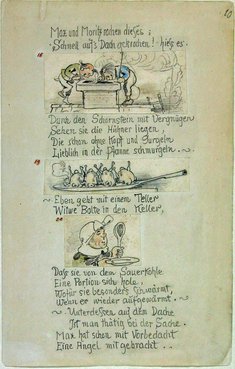 20
Max und Moritz rochen dieses;
"Schnell aufs Dach gekrochen!" hieß es.
18
Durch den Schornstein mit Vergnügen
Sehen sie die Hühner liegen,
Die schon ohne Kopf und Gurgeln
Lieblich in der Pfanne schmurgeln.
19
Eben geht mit einem Teller
Witwe Bolte in den Keller,
20
Daß sie von dem Sauerkohle
Eine Portion sich hole,
Wofür sie besonders schwärmt,
Wenn er wieder aufgewärmt.
Unterdessen auf dem Dache
Ist man thätig bei der Sache.
Max hat schon mit Vorbedacht
Eine Angel mit gebracht...